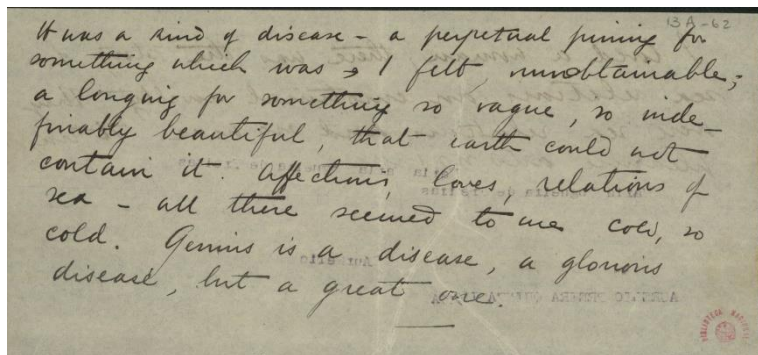 13A-62
It was a kind of disease – a perpetual pining for
something which was, I felt, unobtainable;
a longing for something so vague, so inde-
finably beautiful, that earth could not
contain it. Affections, loves, relations of
sex – all these seemed to me cold, so
cold. Genius is a disease, a glorious
disease, but a great one.